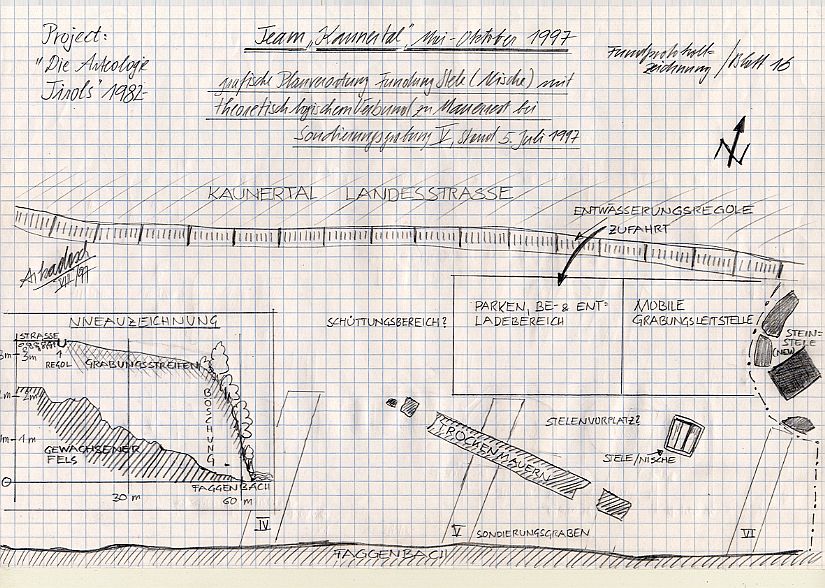 Project:
"Die Arkeologie
Tirols" 1982-
Team "Kaunertal", Mai-Oktober 1997
grafische Planverortung Fundung Stele (Nische) mit
theoretisch logischem Verbund zu Mauerrest bei
Sondierungsgrabung V, Stand 5. Juli 1997
Fundprotokoll-
zeichnung / Blatt 16
N
KAUNERTAL LANDESSTRASSE
ENTWÄSSERUNGSREGOLE
ZUFAHRT
VII/97
NNEAUZEICHNUNG
SCHÜTTUNGSBEREICH?
PARKEN, BE- & ENT=
LADEBEREICH
MOBILE
GRABUNGSLEITSTELLE
STEIN-
STELE
(NEU)
STRASSE
3m
3m
REGOL
GRABUNGSSTREIFEN
BÖSCHUNG
2m
1m
1m
GEWACHSENER
FELS
0
30 m
FAGGENBACH
60 m
STELENVORPLATZ?
TROCKENMAUERN
STELE/NISCHE
IV
V
SONDIERUNGSGRABEN
VI
FAGGENBACH